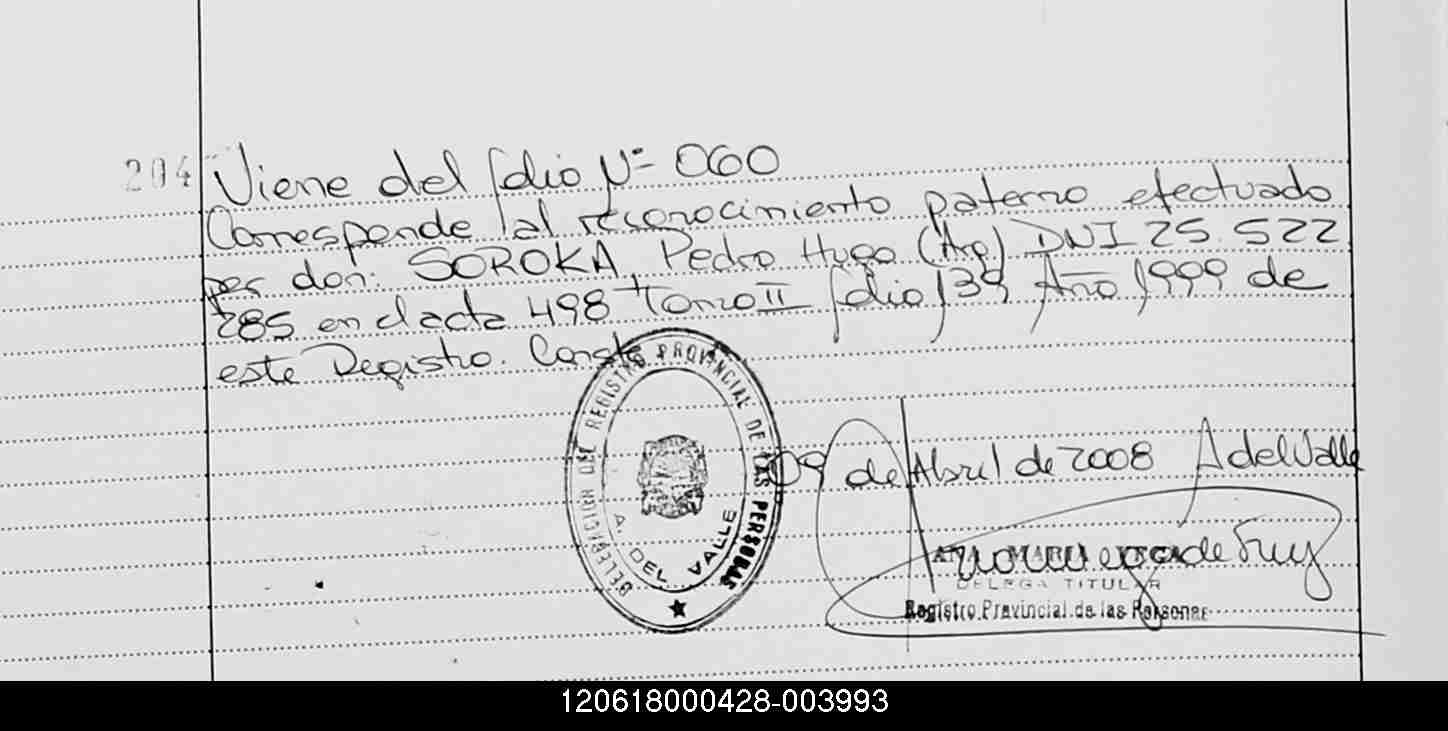 204 Viene del folio Nº 060
Corresponde al reconocimiento paterno efectuado
por don: SOROKA, Pedro Hugo (Arg) DNI 25.522
285 en el acta 498 Tomo II folio 139 Año 1999 de
este Registro. Conste
DELEGACION DEL REGISTRO PROVINCIAL DE LAS PERSONAS
A. DEL VALLE
09 de Abril de 2008 A del Valle
MARIA
DELEGA TITULAR
Registro Provincial de las Personas
120618000428-003993